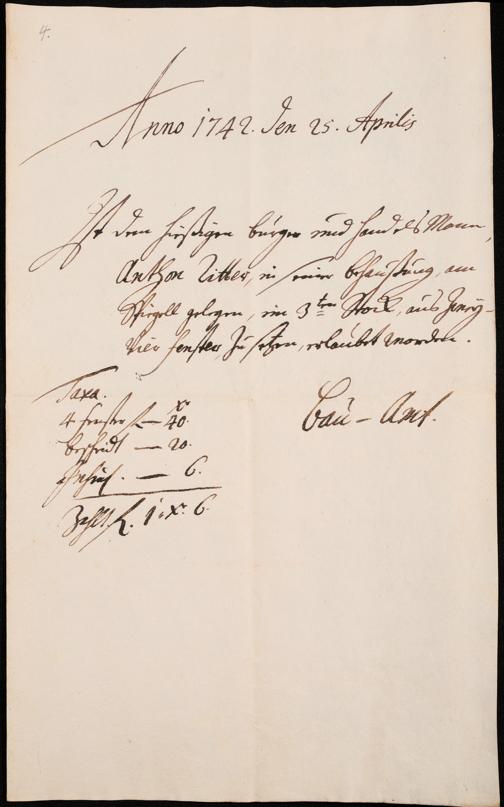 4.
Anno 1742. den 25. Aprilis
Ist dem hießigen burger und handels Mann,
Anthon Ritter, in seiner behaußung, am
Spiegell gelegen, im 3ten Stock, aus
Vier fenster, zu setzen, erlaubet worden.
Taxa. xr
4 fenster f. — 40.
bescheidt — 20.
— 6.
Bau-Amt.
f. 1. xr. 6.